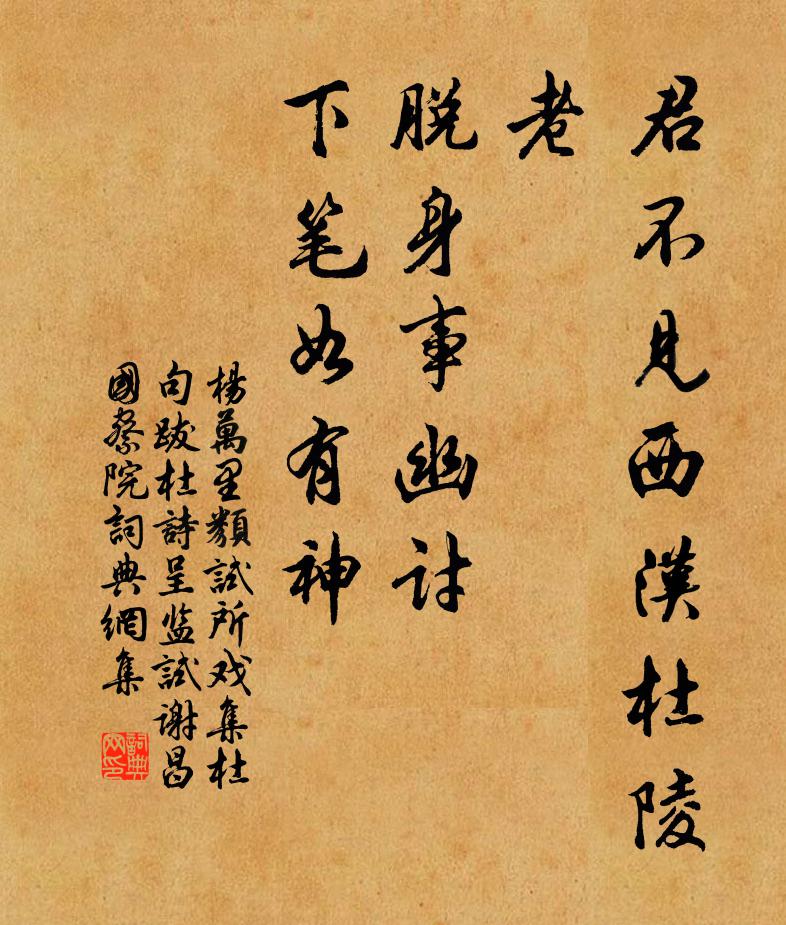 君不见西漢杜陵
老
脱身事幽讨
下笔如有神
楊萬里類試所戏集杜
句跋杜詩呈监試谢昌
國察院詞典網集
詞典
网印